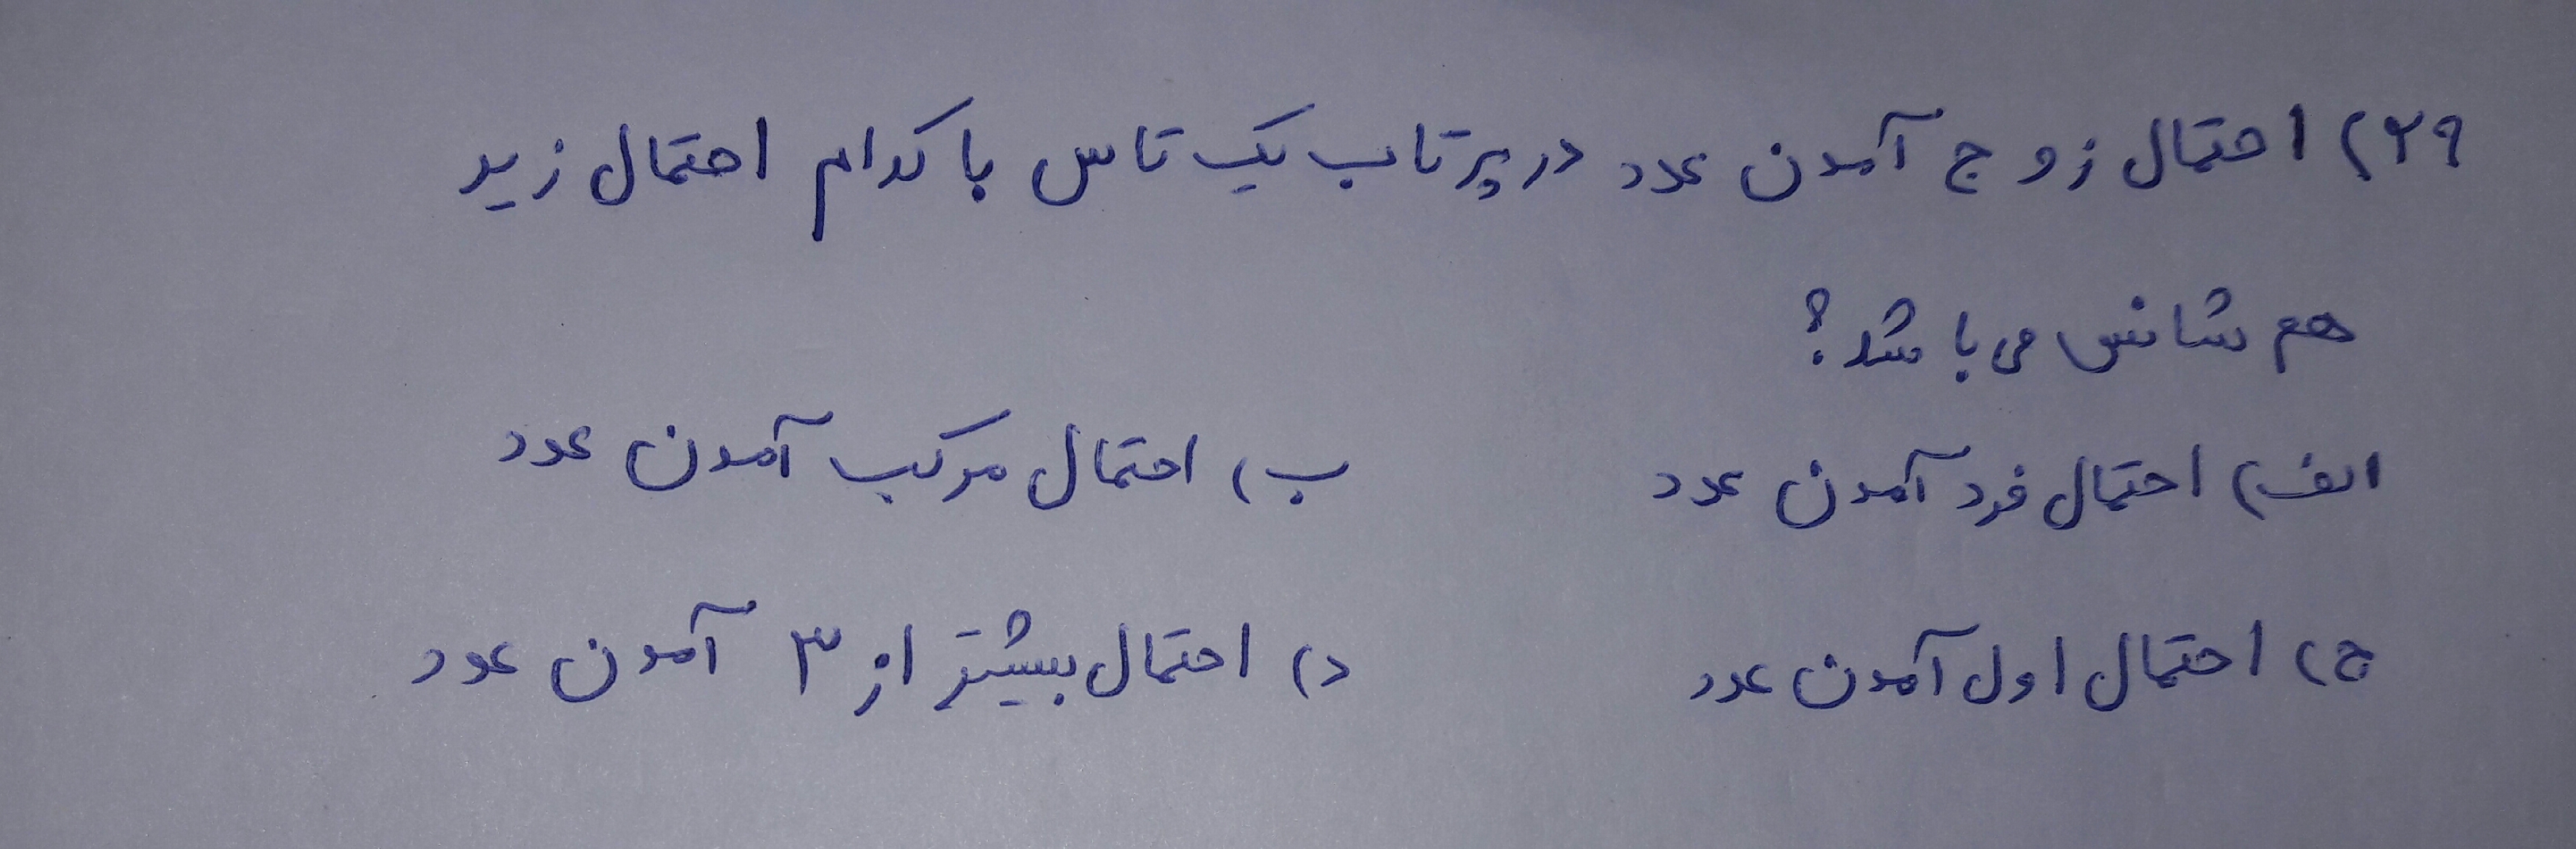 ۲۹) احتمال زوج آمدن عدد در پرتاب یک تاس با کدام احتمال زیر
هم شانس می باشد؟
الف) احتمال فرد آمدن عدد ب) احتمال مرکب آمدن عدد
ج) احتمال اول آمدن عدد د) احتمال بیشتر از ۳ آمدن عدد